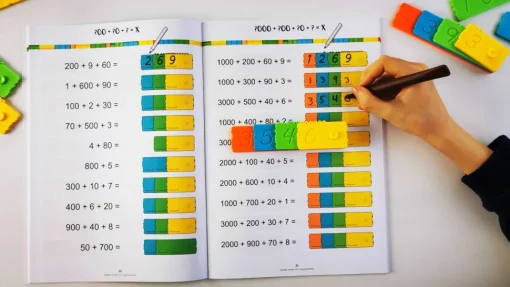 ?00 + ?0 + ? = X
200 + 9 + 60 = 2 6 9
1 + 600 + 90 =
100 + 2 + 30 =
70 + 500 + 3 =
4 + 80 =
800 + 5 =
300 + 10 + 7 =
400 + 6 + 20 =
900 + 40 + 8 =
50 + 700 =
?000 + ?00 + ?0 + ? = X
1000 + 200 + 60 + 9 = 1 2 6 9
1000 + 300 + 90 + 3 = 1 3 9 3
3000 + 500 + 40 + 6 = 3 5 4
1000 + 400 + 80 + 2 =
3 5 4 6
2000 + 100 + 40 + 5 =
2000 + 600 + 10 + 4 =
1000 + 700 + 20 + 1 =
3000 + 200 + 30 + 7 =
2000 + 900 + 70 + 8 =